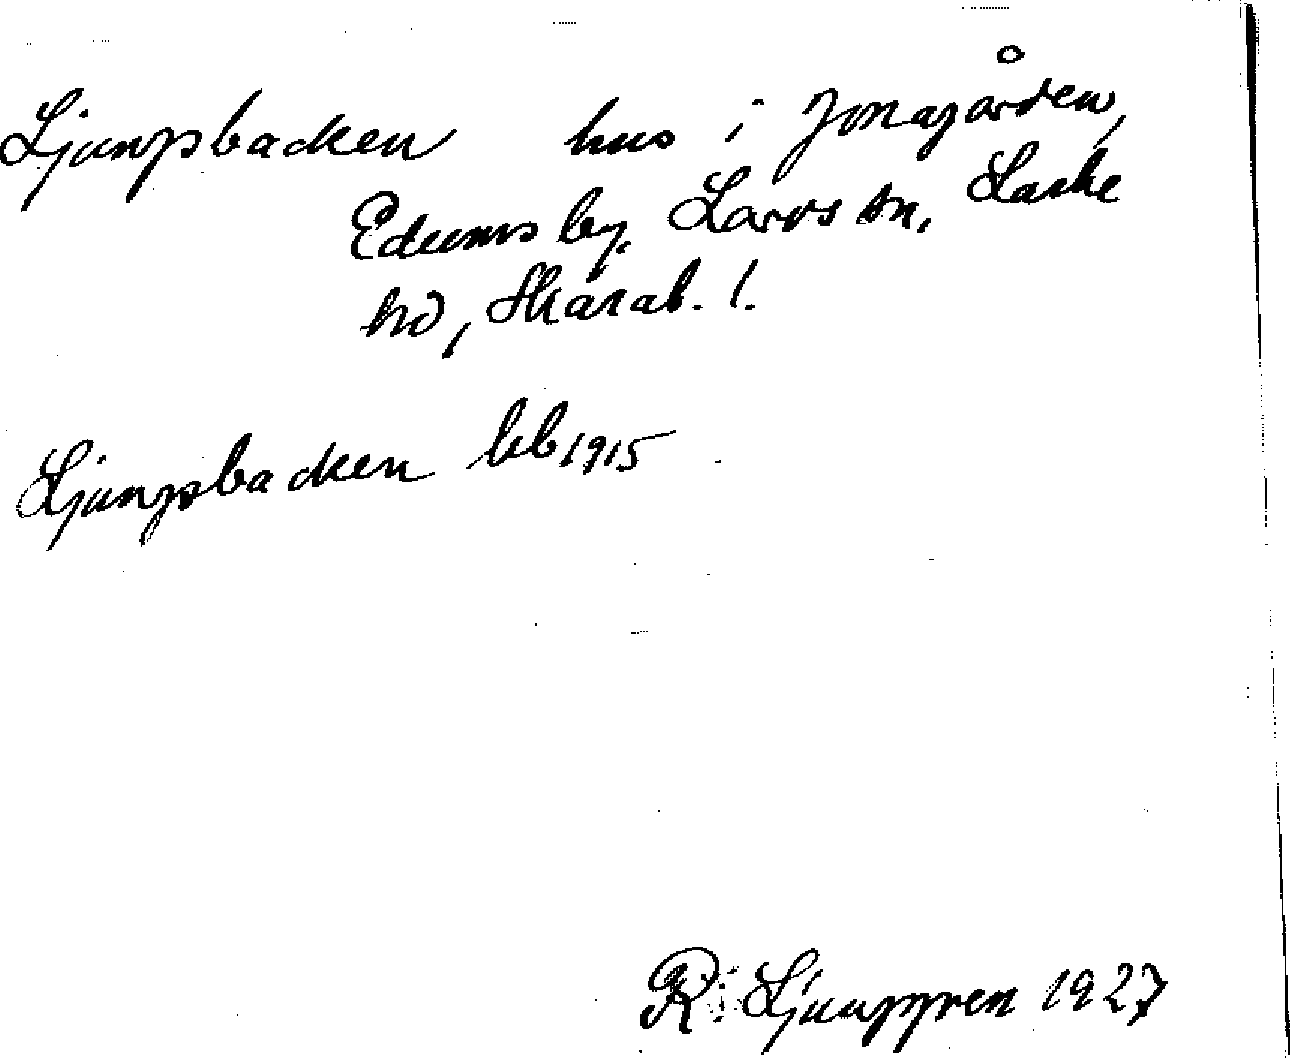 Ljungsbacken hus i Jonagården,
Edums by. Larvs sn, Laske
hd, Skarab. l.
Ljungsbacken kb 1915
R. Ljunggren 1927